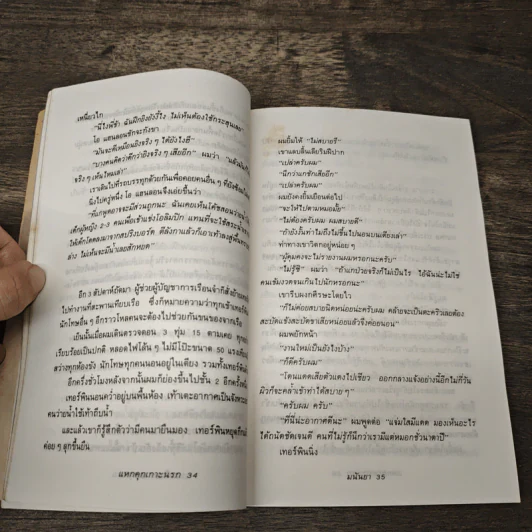 เหนี่ยวไก
"นี่ไงพี่ข้า ฉันฝึกยิงตัวรี้ไง ไม่เห็นต้องใช้กระสุนเลย"
โอ แฮนลอนชักจะกังขา
"มันจะดีเหมือนยิงจริง ๆ ได้ยังไงฮึ"
"บางคนคิดว่าดีกว่ายิงจริง ๆ เสียอีก" ผมว่า
จริง ๆ เห็นไหมเล่า"
เราเดินไปที่รถบรรทุกด้วยกันเพื่อคอยคนอื่น ๆ
นิ่งไปครู่หนึ่ง โอ แฮนลอนจึงเอ่ยขึ้นว่า
"ที่แกพูดอาจจะมีส่วนถูกนะ ฉันเคยเห็นโค้ชสอนว่ายน้ำ
เด็กผู้หญิง 2-3 คนเพื่อเข้าแข่งโอลิมปิก แทนที่จะใช้สระน้ำ
ให้เด็กโดดลงมาจากสปริงบอร์ด ตีลังกาแล้วก็เอาเท้าลงสู่พื้น
ล่าง ไม่เห็นจะมีน้ำเลยสักหยด"
อีก 3 สัปดาห์ถัดมา ผู้ช่วยผู้บัญชาการเรือนจำก็สั่งย้าย
ไปทำงานที่สะพานเทียบเรือ ซึ่งก็หมายความว่าทุกเช้า
นักโทษอื่น ๆ อีกราวโหลคนจะต้องไปช่วยกันขนของจากเรือ
เย็นนั้นเมื่อผมเดินตรวจตอน 3 ทุ่ม 15 ตามเคย ทุก
เรียบร้อยเป็นปกติ หลอดไฟโด้น ๆ ไม่มีโป๊ะขนาด 50 แรงเทียน
สว่างทุกห้องขัง นักโทษทุกคนนอนอยู่ในเตียง รวมทั้งเทอร์พิน
อีกครึ่งชั่วโมงหลังจากนั้นผมก็ย่องขึ้นไปชั้น 2 อีกครั้ง
เทอร์พินนอนคว่ำอยู่บนพื้นห้อง เท้าเตะอากาศเป็นจังหวะ
คนว่ายน้ำใช้เท้าถีบน้ำ
และแล้วเขาก็รู้สึกตัวว่ามีคนมายืนมอง เทอร์พินหยุด
ค่อย ๆ ลุกขึ้นยืน
แหกคุกเกาะนรก 34
ผมยิ้มให้ "ไม่สบายรึ"
เขาแลบลิ้นเลียริมฝีปาก
"เปล่าครับผม"
"นึกว่าแกชักเสียอีก"
"เปล่าครับผม"
ผมยังคงยิ้มเยือนต่อไป
"จะให้ไปตามหมอมั้ย"
"ไม่ต้องครับผม ผมสบายดี"
"ถ้ายังงั้นทำไมถึงไม่ขึ้นไปนอนบนเตียงล่ะ"
ท่าทางเขาวิตกอยู่หน่อย ๆ
"ผู้คุมคงจะไม่รายงานผมหรอกนะครับ"
"ไม่รู้ซี" ผมว่า "ถ้าแกป่วยจริงก็ไม่เป็นไร ไอ้ฉันน่ะไม่ใช่
คนเข้มงวดจนเกินไปนักหรอกนะ"
เขารีบผงกศีรษะโดยไว
"ก็ไม่ค่อยสบายนิดหน่อยน่ะครับผม คล้ายจะเป็นตะคริวเลยต้อง
สะบัดแข้งสะบัดขาเสียหน่อยแล้วรีงค่อยนอน"
ผมพยักหน้า
"งานใหม่เป็นยังไงบ้าง"
"ก็ดีครับผม"
"โดนแดดเสียตัวแดงไปเชียว ออกกลางแจ้งอย่างนี้อีกไม่กี่วัน
ผิวก็จะคล้ำเข้าท่าได้สบาย ๆ"
"ครับผม ครับ"
"ที่นี่น่ะอากาศดีนะ" ผมพูดต่อ "แจ่มใสมีแดด มองเห็นอะไร
ได้ถนัดชัดเจนดี คนที่ไม่รู้ก็นึกว่าเรามีแต่หมอกชั่วนาตาปี"
เทอร์พินนิ่ง
มนันยา 35